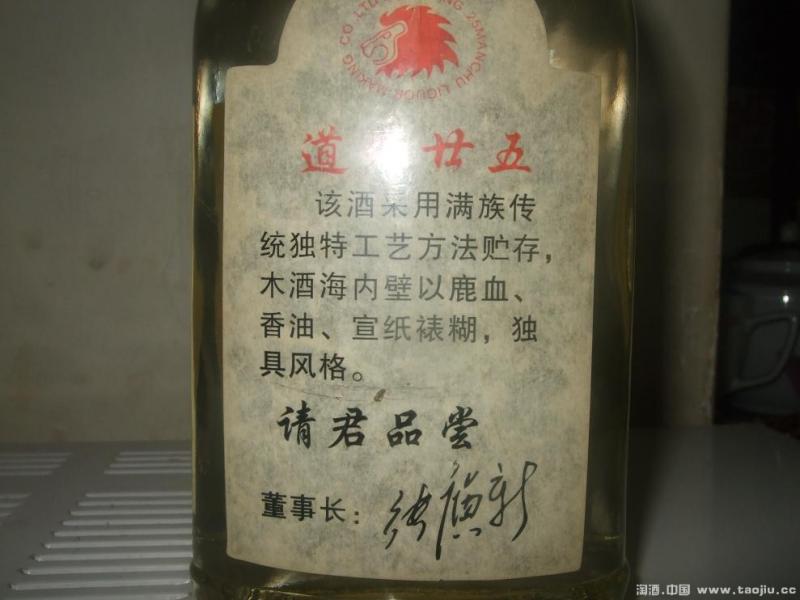 CO.,LTD
25MANCHU LIQUOR-MAKING
道光廿五
该酒采用满族传
统独特工艺方法贮存，
木酒海内壁以鹿血、
香油、宣纸裱糊，独
具风格。
请君品尝
董事长：
淘酒.中国 www.taojiu.cc